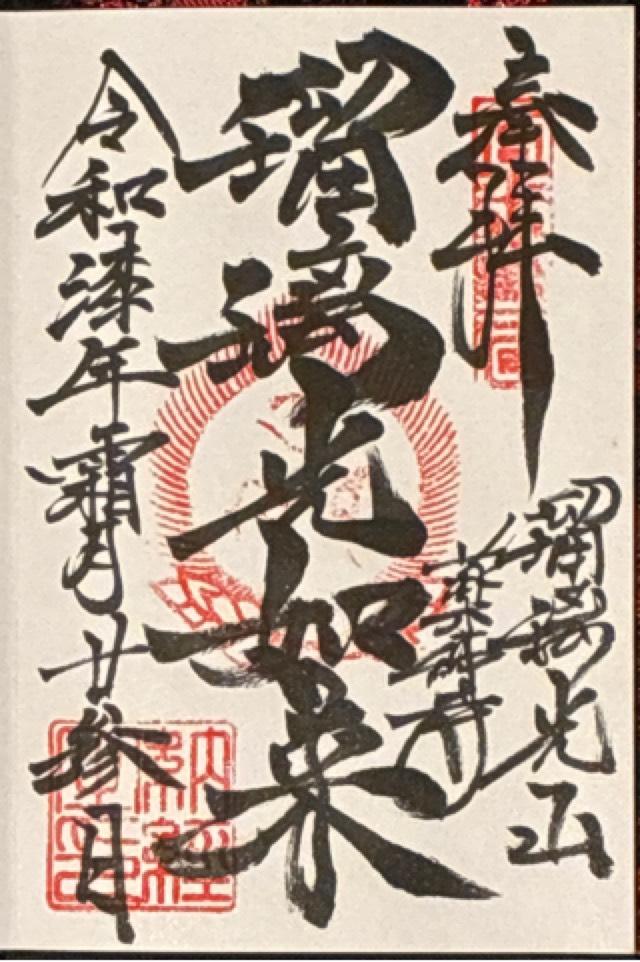 奉拝
瑠璃光山
薬師寺
瑠璃光如来
令和漆年霜月廿参日
納経